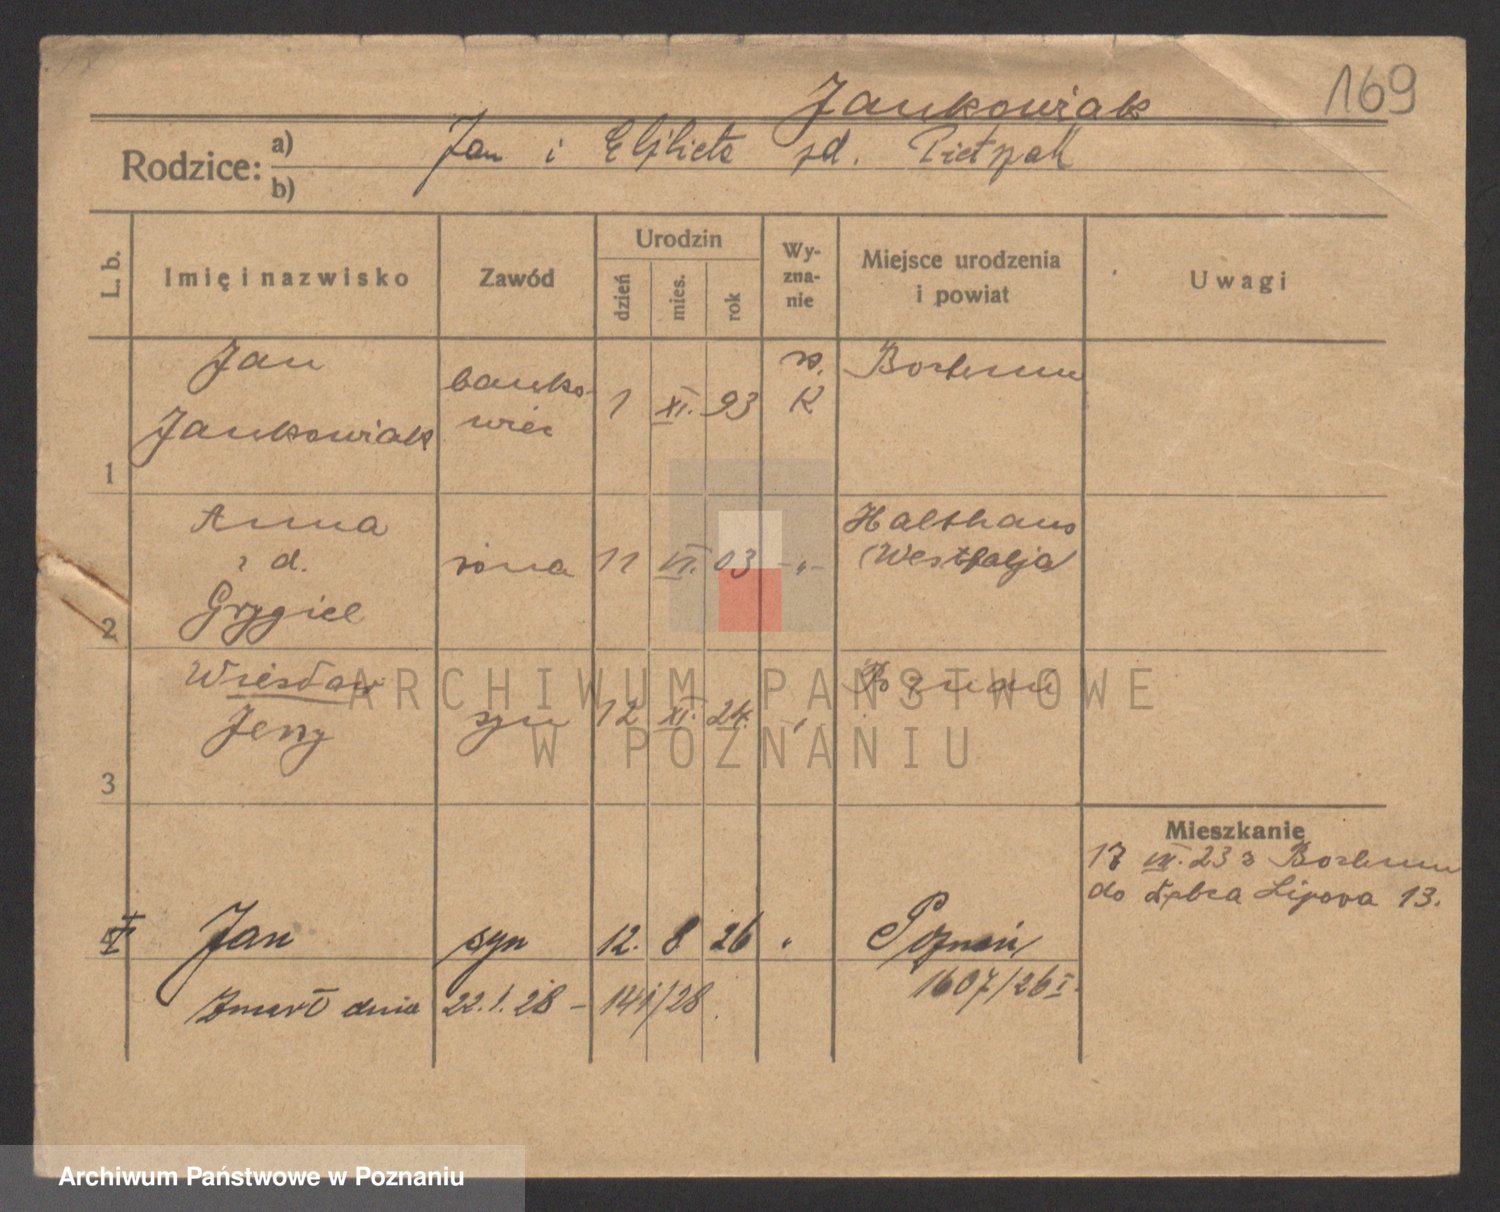 169
Jankowiak
Rodzice: a) Jan i Elżbieta zd. Pietrzak
b)
L. b.
Imię i nazwisko
Zawód
Urodzin
dzień
mies.
rok
Wy-
zna-
nie
Miejsce urodzenia
i powiat
Uwagi
1
Jan
Jankowiak
banko-
wiec
1 XI. 93
rz.
K
Bochum
2
Anna
z d.
Grygiel
żona
11 VI. 03 -"-
Halthaus
(Westfalja)
3
Wiesław
Jerzy
syn
12 XI. 24.
Poznań
Mieszkanie
17 VII. 23 z Bochum
do Łąbca Lipova 13.
4
Jan
syn
12. 8 26 "
Poznań
1607/26 I.
Zmarł dnia 22.1.28 - 141/28.
ARCHIWUM PAŃSTWOWE
W POZNANIU
Archiwum Państwowe w Poznaniu